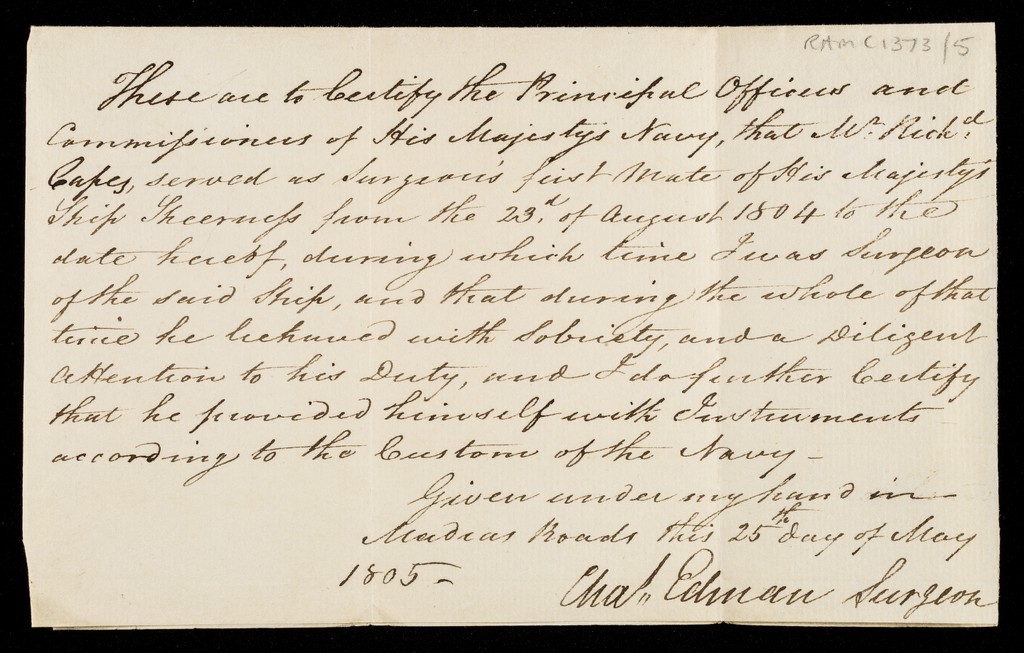 RAMC 1373/5
These are to Certify the Principal Officers and
Commissioners of His Majestys Navy, that Mr. Richd.
Capes, served as Surgeon's first Mate of His Majesty's
Ship Sheerness from the 23d. of August 1804 to the
date hereof, during which time I was Surgeon
of the said Ship, and that during the whole of that
time he behaved with Sobriety, and a Diligent
Attention to his Duty, and I do further Certify
that he provided himself with Instruments
according to the Custom of the Navy —
Given under my hand in —
Madras Roads this 25th day of May
1805 —
Chas. Edman Surgeon